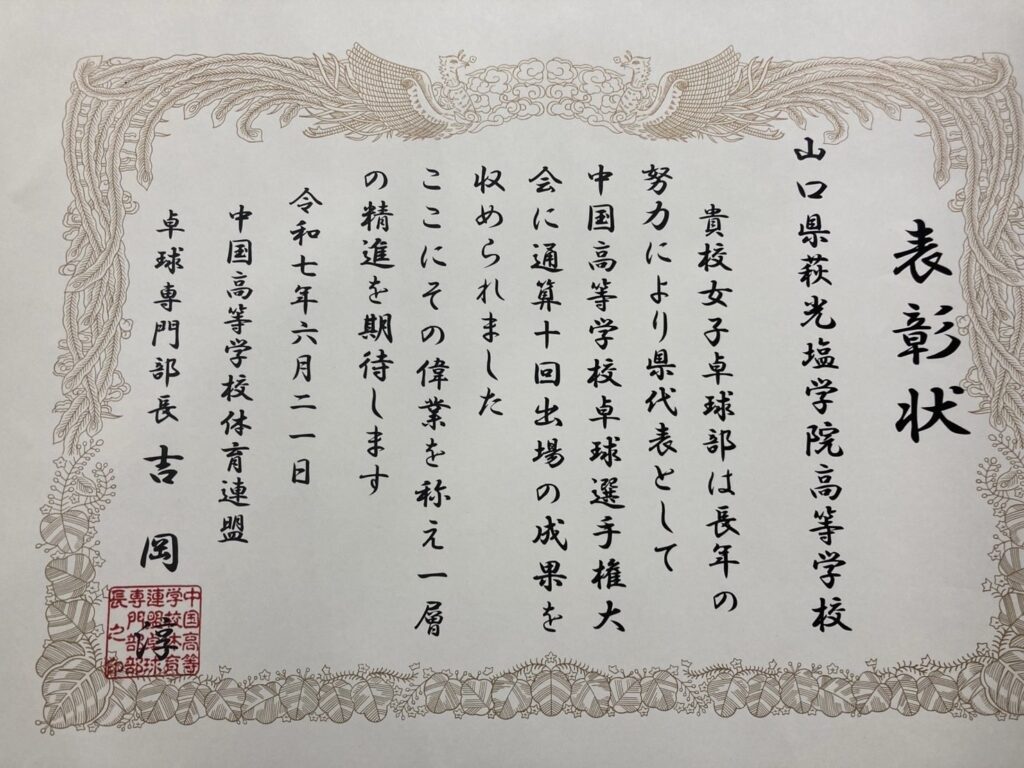 表彰状
山口県萩光塩学院高等学校
貴校女子卓球部は長年の
努力により県代表として
中国高等学校卓球選手権大
会に通算十回出場の成果を
収められました
ここにその偉業を称え一層
の精進を期待します
令和七年六月二一日
中国高等学校体育連盟
卓球専門部長 吉岡淳
中国高等
学校体育
連盟卓球
専門部部
長之印